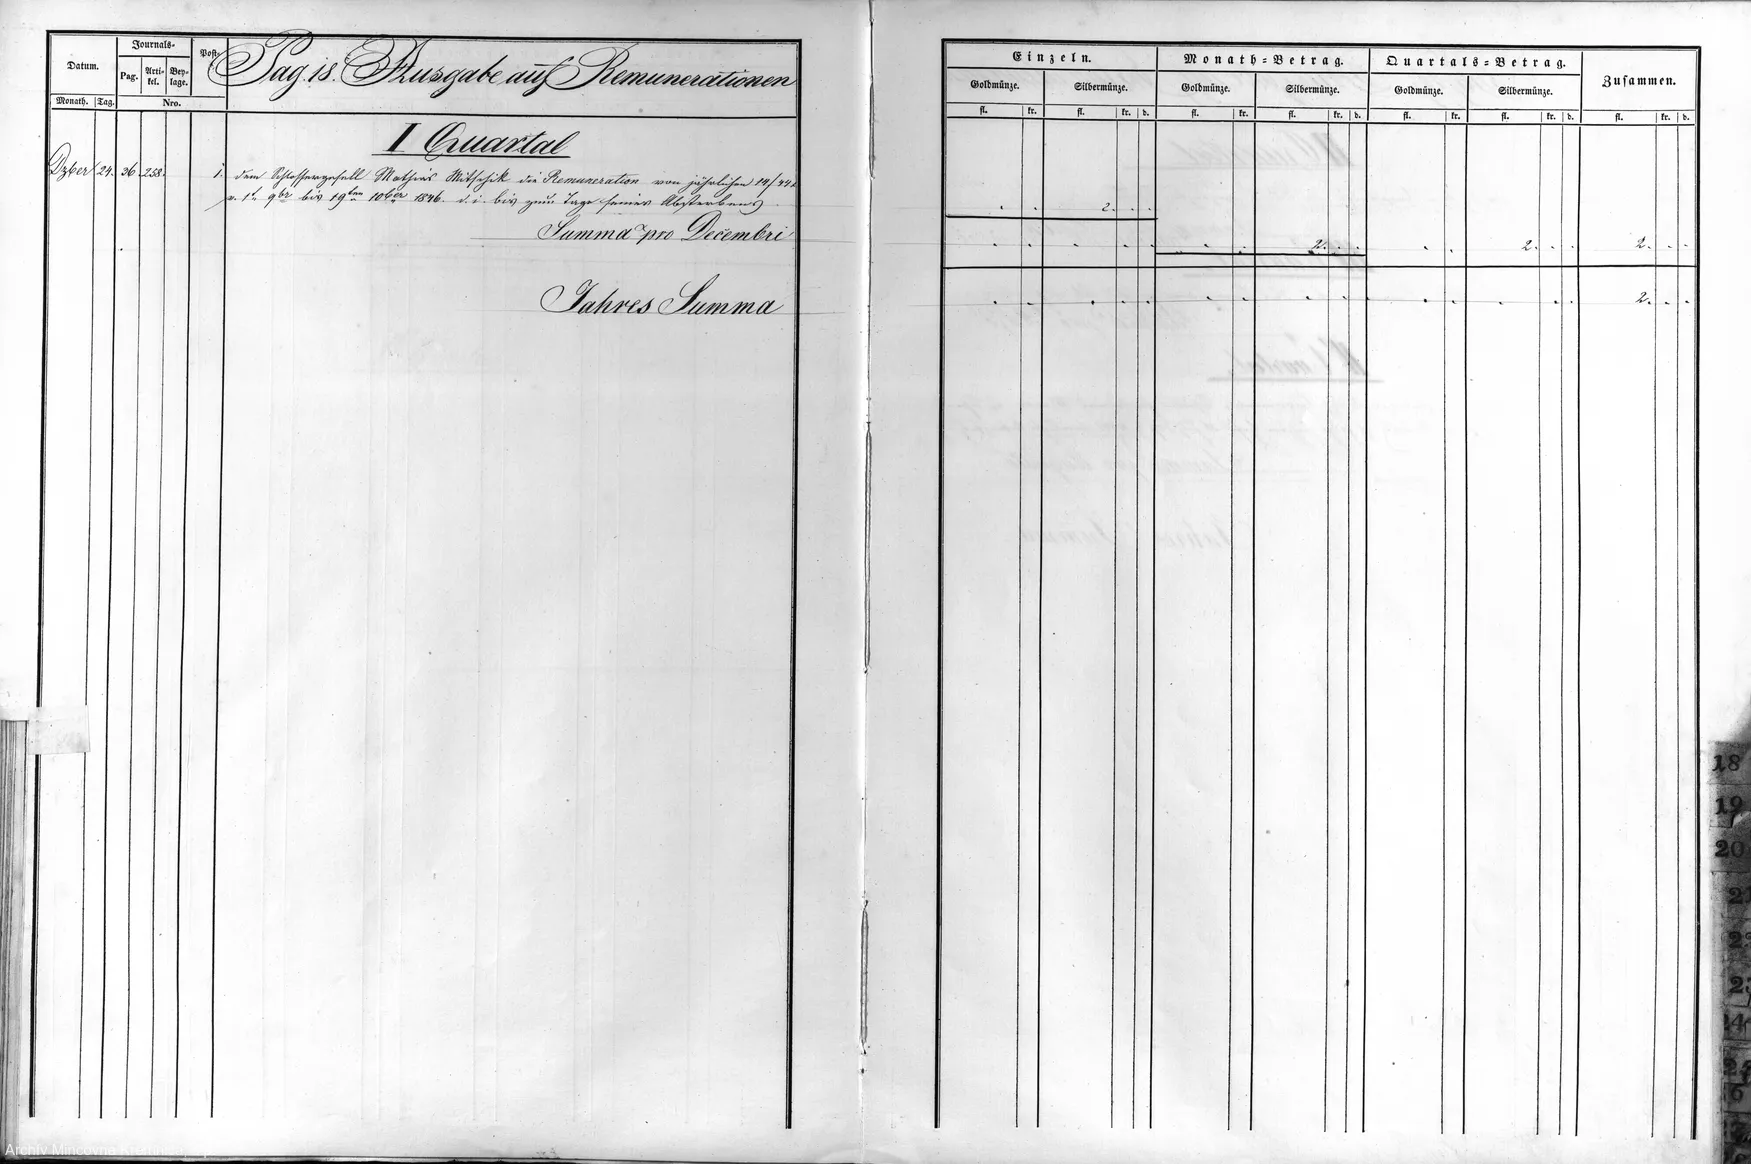 Datum.
Journals-
Pag.
Arti-
kel.
Bey-
lage.
Post-
Monath.
Tag.
Nro.
Pag. 18. Ausgabe auf Remunerationen
I Quartal
Dzber 24. 36. 258. 1. dem Schlossergesell Mathias Mitschik die Remuneration von jährlichen 14/44
v. 1t 9br bis 19ten 10ber 1846. d. i. bis zum Tage seines Absterbens
Summa pro Decembri
Jahres Summa
Einzeln.
Monath=Betrag.
Quartals=Betrag.
Zusammen.
Goldmünze.
Silbermünze.
Goldmünze.
Silbermünze.
Goldmünze.
Silbermünze.
fl. kr. fl. kr. d. fl. kr. fl. kr. d. fl. kr. fl. kr. d. fl. kr. d.
2.
2. 2. 2.
2.
18
19
20
Archiv Mincovna